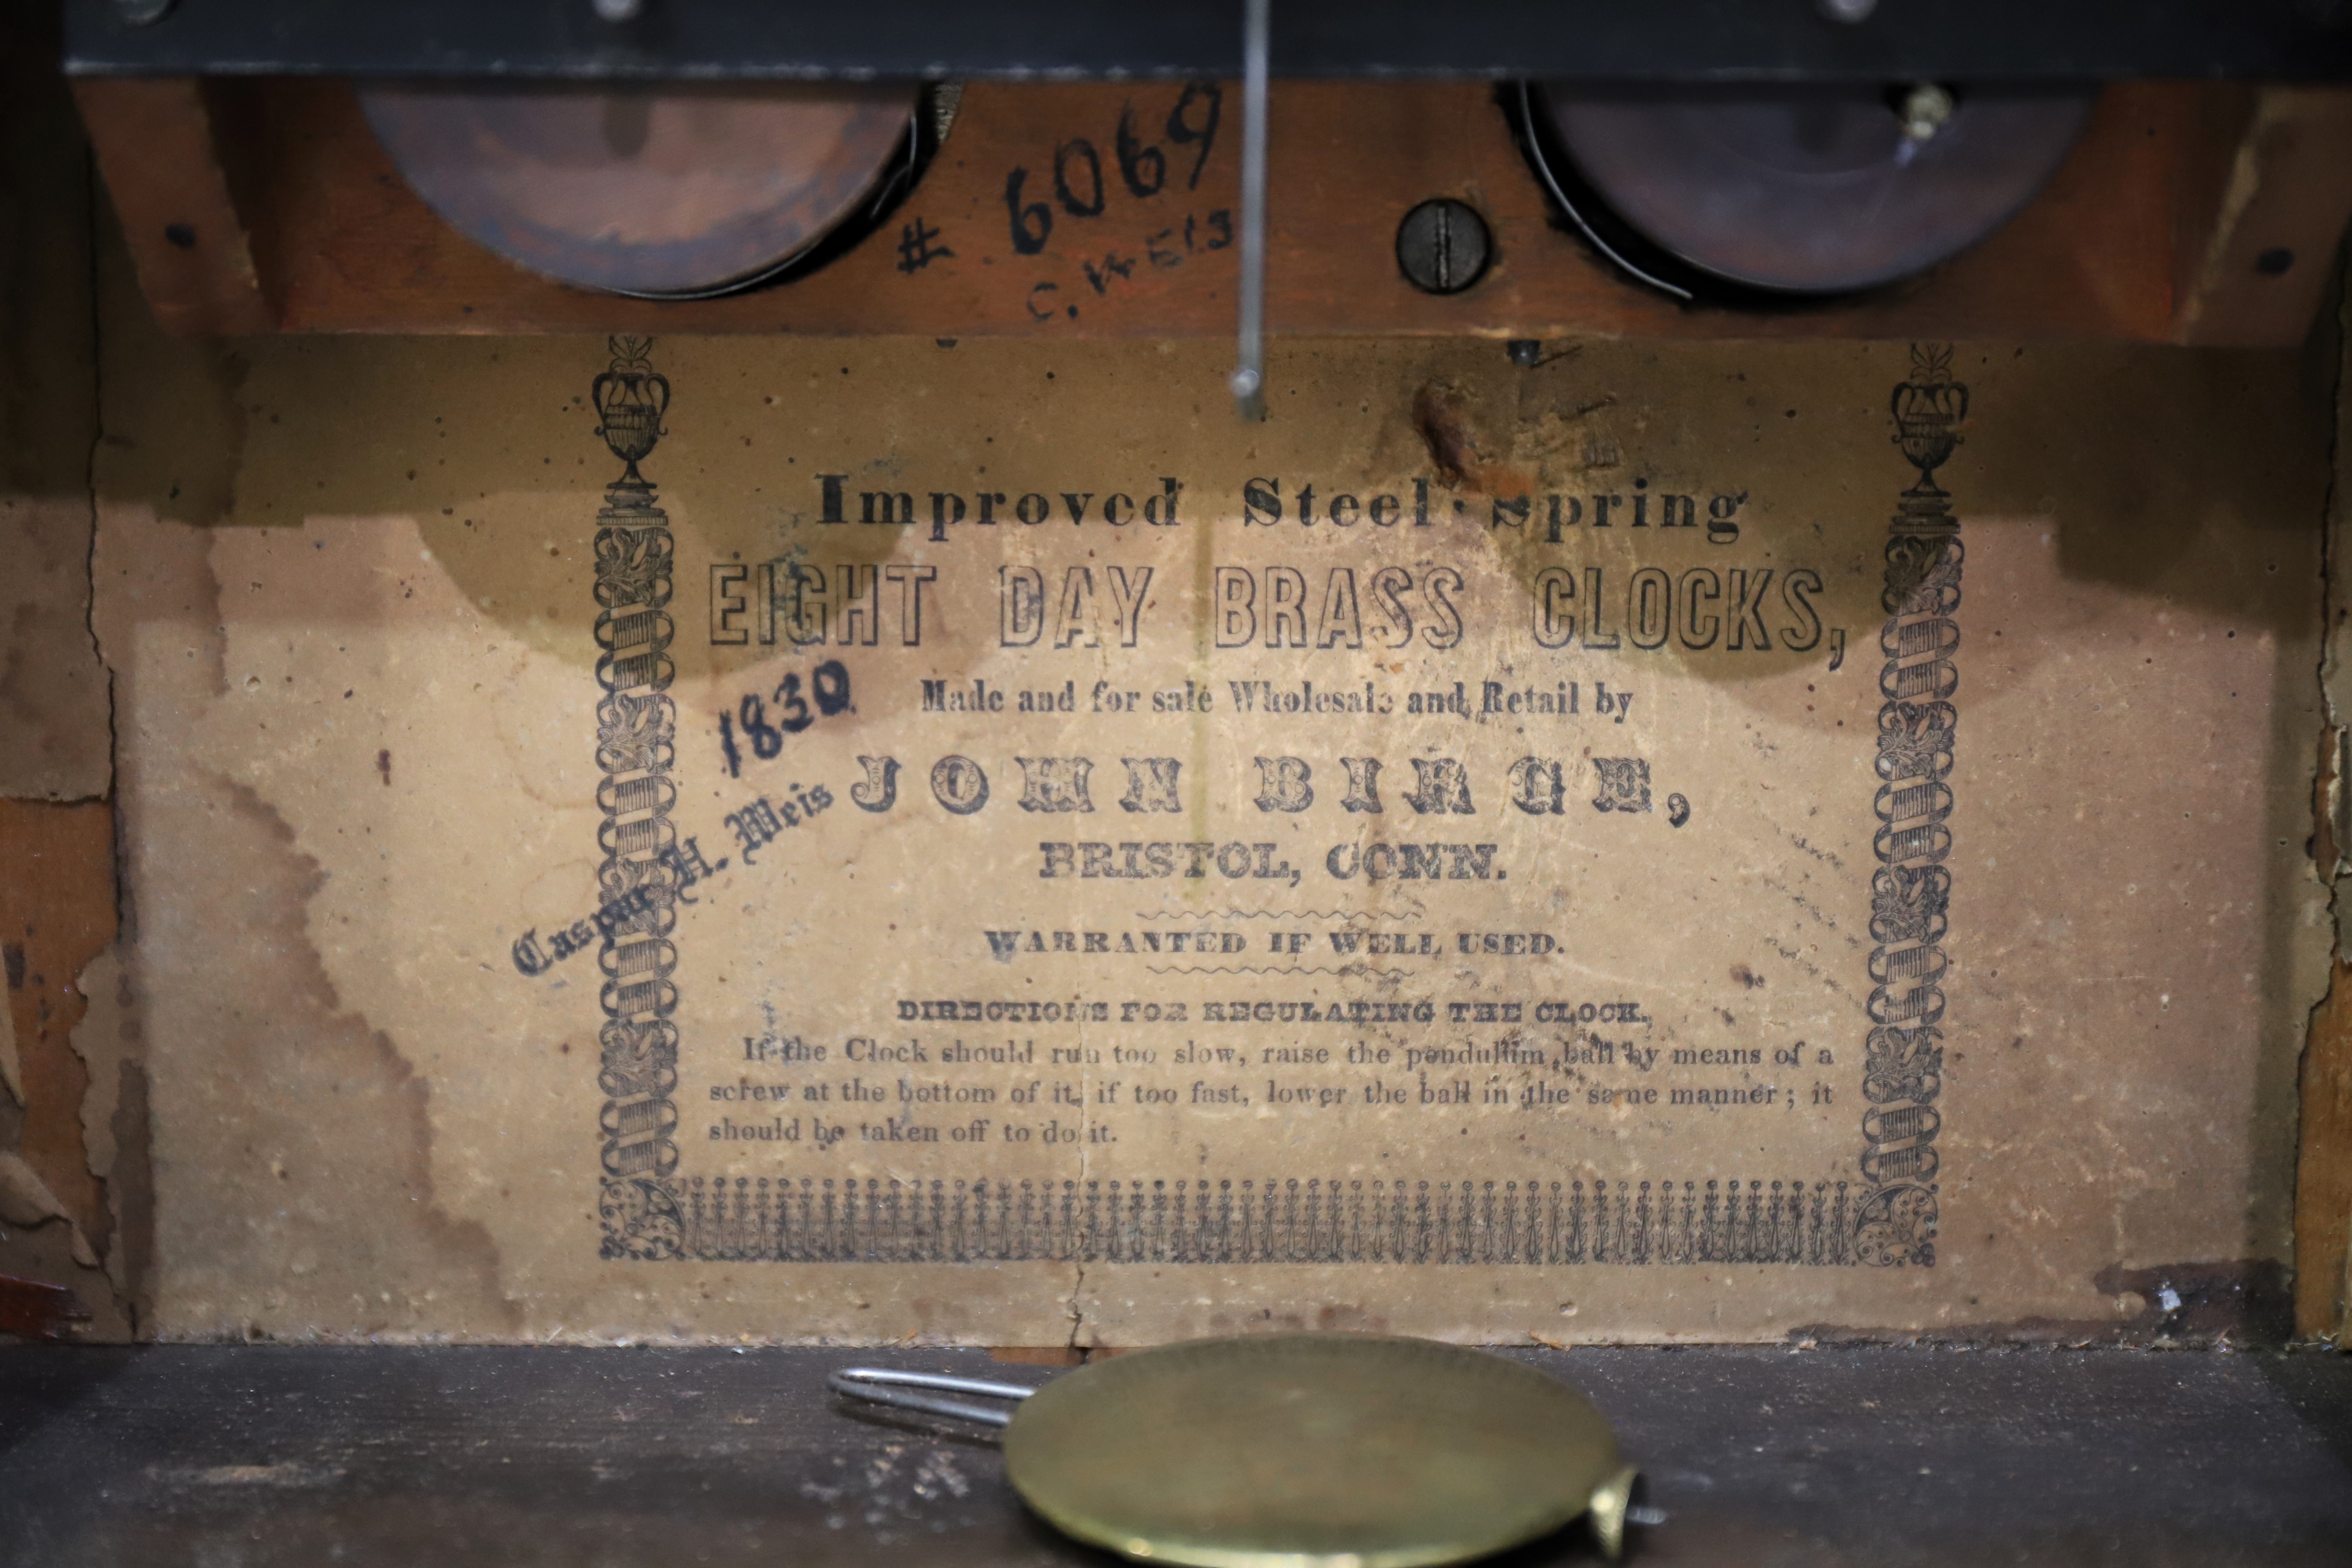 # 6069
C. Weis
Improved Steel Spring
EIGHT DAY BRASS CLOCKS,
Made and for sale Wholesale and Retail by
1830
JOHN BIRGE,
Caspar H. Weis
BRISTOL, CONN.
WARRANTED IF WELL USED.
DIRECTIONS FOR REGULATING THE CLOCK.
If the Clock should run too slow, raise the pendulum ball by means of a
screw at the bottom of it, if too fast, lower the ball in the same manner; it
should be taken off to do it.